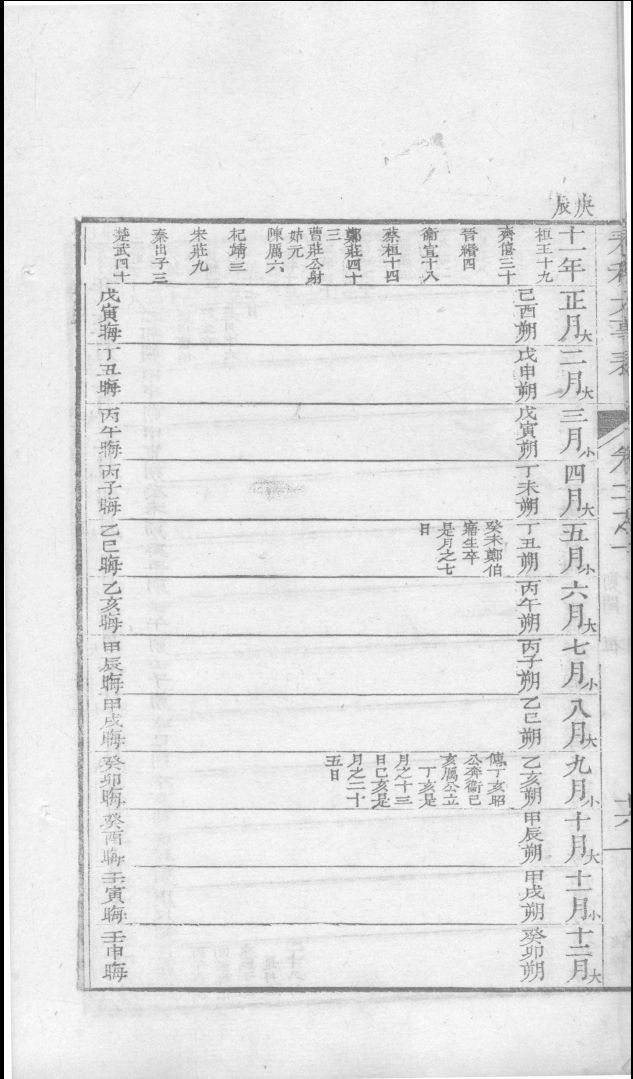 庚辰
十一年
桓王十九
齊僖三十
晉緡四
衞宣十八
蔡桓十四
鄭莊四十
三
曹莊公射
姑元
陳厲六
杞靖三
宋莊九
秦出子三
楚武四十
正月大
己酉朔
戊寅晦
二月大
戊申朔
丁丑晦
三月小
戊寅朔
丙午晦
四月大
丁未朔
丙子晦
五月小
丁丑朔
癸未鄭伯
寤生卒
是月之七
日
乙巳晦
六月大
丙午朔
乙亥晦
七月小
丙子朔
甲辰晦
八月大
乙巳朔
甲戌晦
九月小
乙亥朔
傳丁亥昭
公奔衞己
亥厲公立
丁亥是
月之十三
日己亥是
月之二十
五日
癸卯晦
十月大
甲辰朔
癸酉晦
十一月小
甲戌朔
壬寅晦
十二月大
癸卯朔
壬申晦
春秋大事表
卷二之一